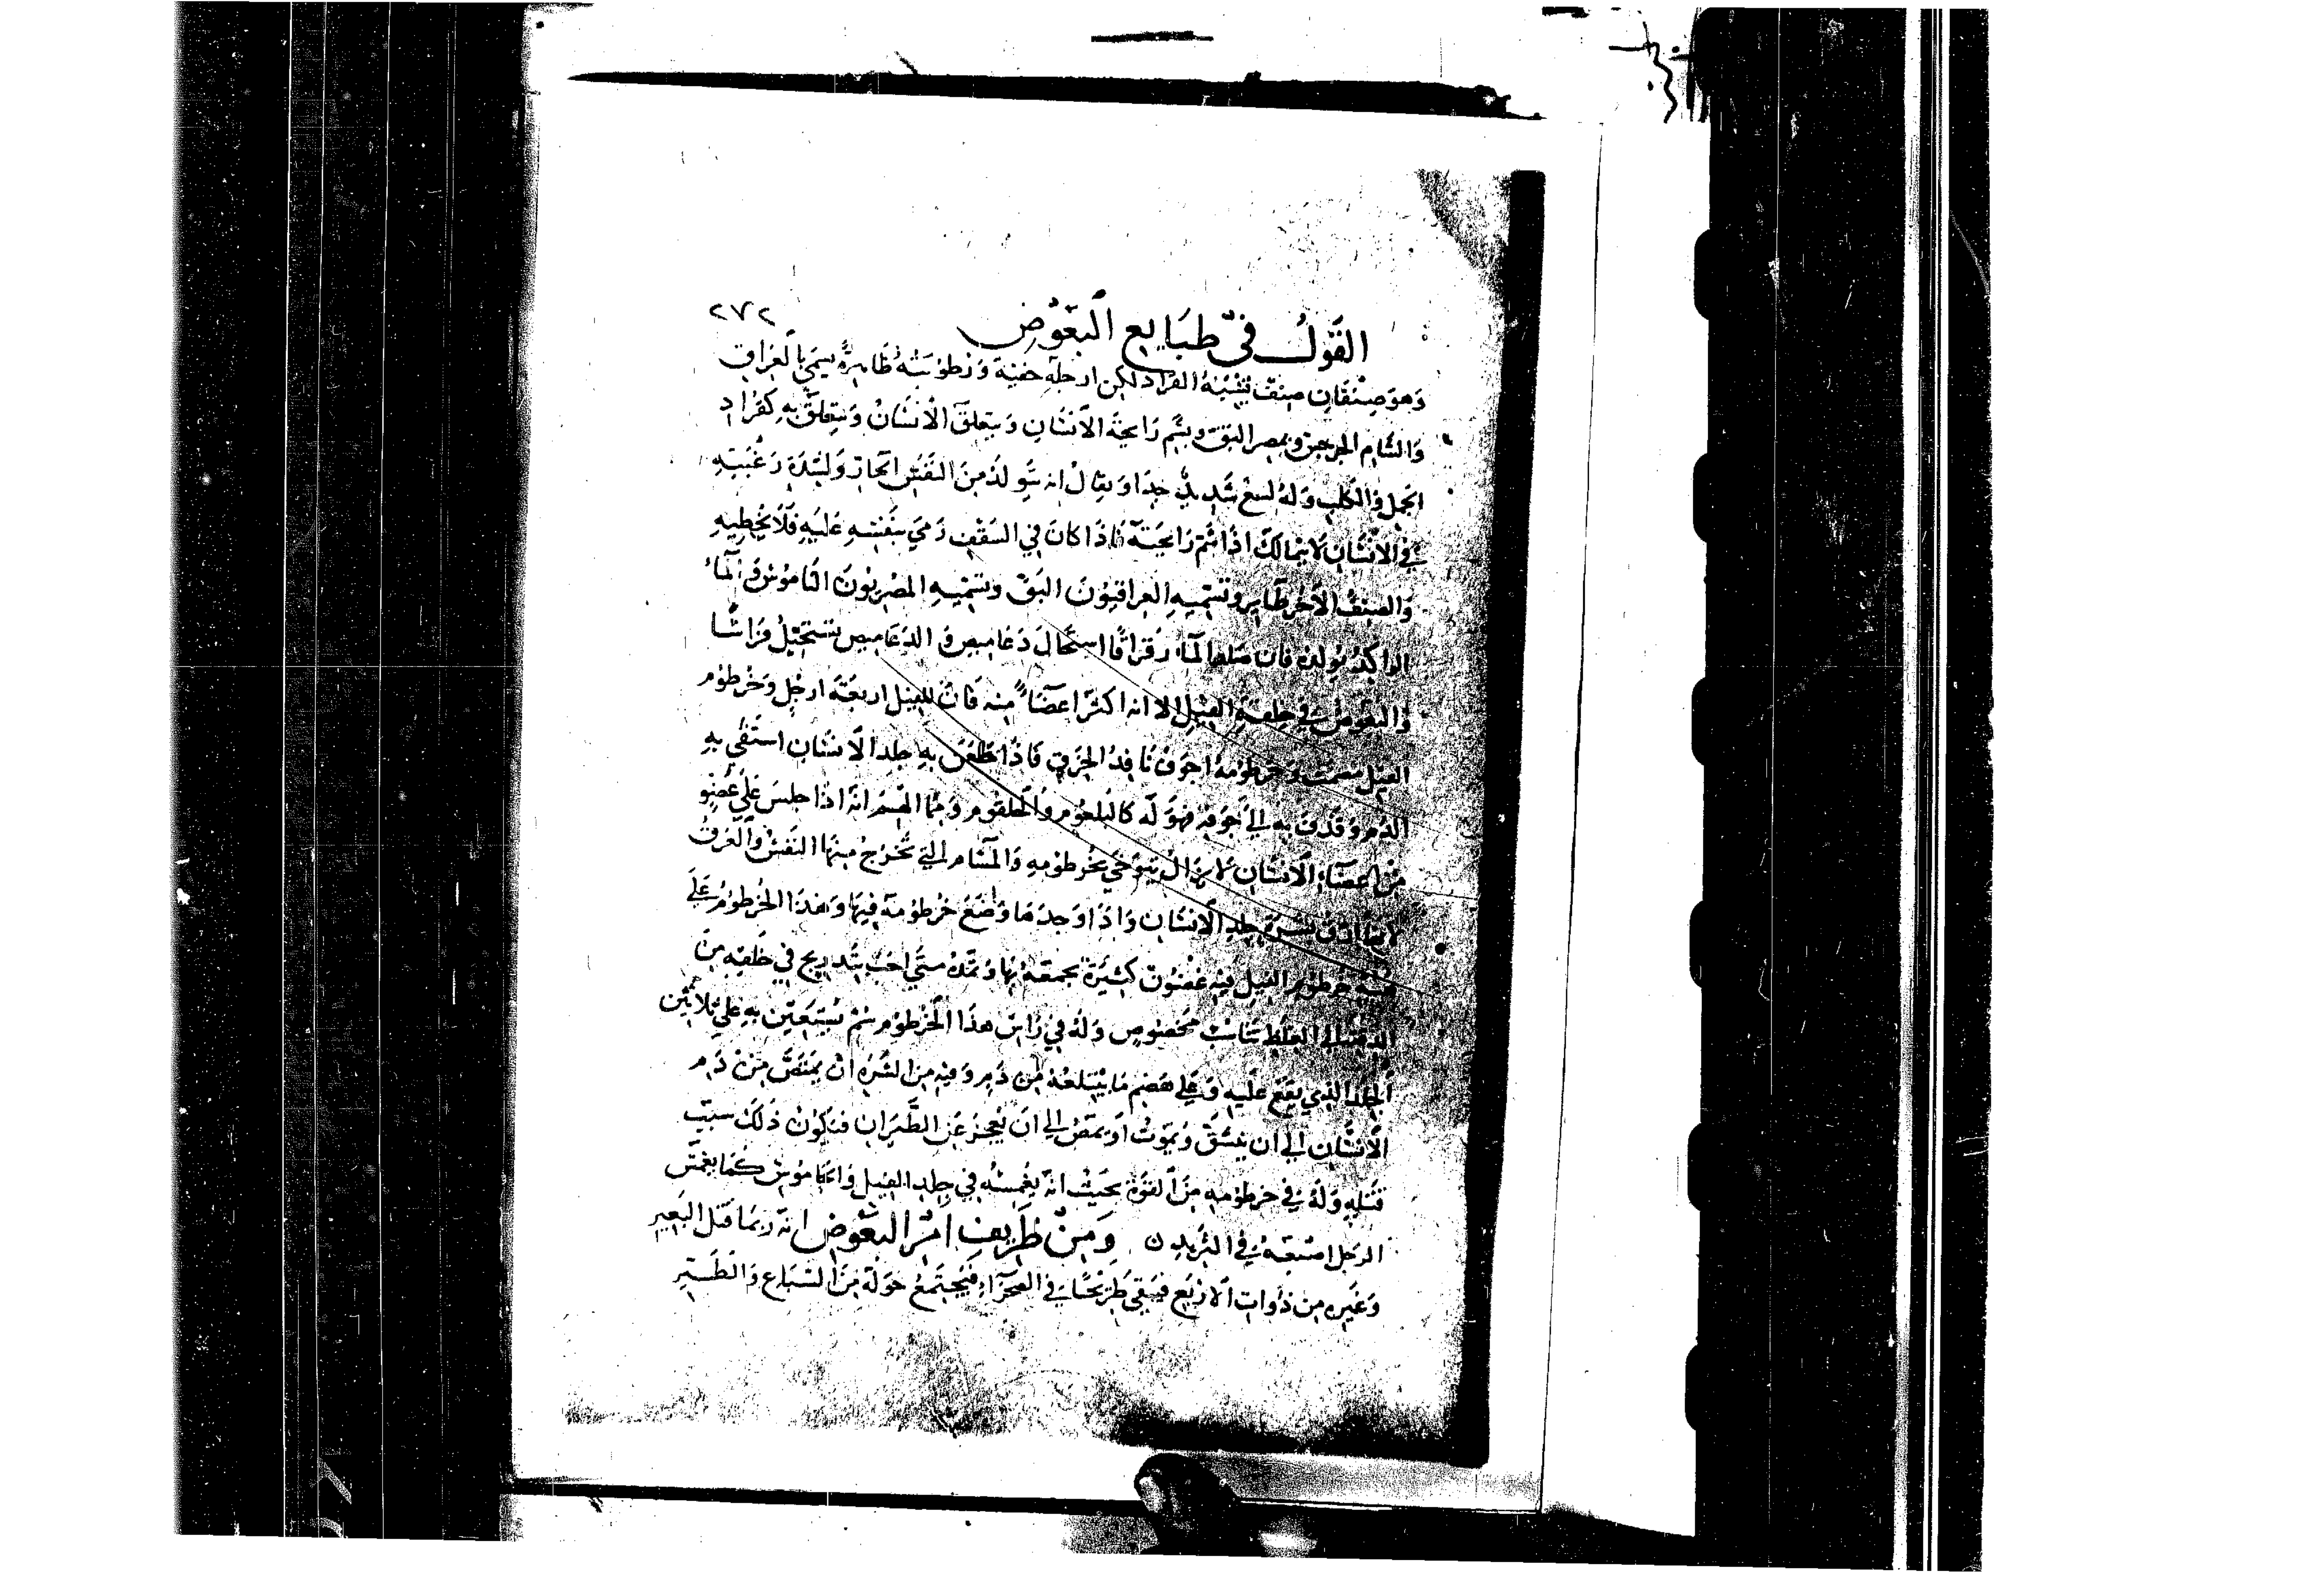 ٢٧٢
القَوْلُ في طبَايع البَعُوْض
وَهو صِنْفان صنف يشبه القراد لكن ارجله خفية وَرطوبته ظاهرة يسمى بالعراق
والشام الجرجس وبمصر البق ويشم رَايحة الانسَان وَيتعلق الانسَان وَيتعلق به كقراد
الجمل والكلب وله لسع شديد جدا ويقال انه يتولد من النفس الحار ولشدة رَغبته
في الانسان لا يتمالك اذا شم رَايحته فاذا كان في السقف رَمى بنفسه عليه فلا يخطيه
والصنف الاخر طاير وتسميه العراقيون البق وتسميه المصريون الناموس وَالماء
الراكد يولده فان صَار الماء رقراقا استحال دعَاميص والدعاميص تستحيل فراشا
والبعوض في خلقة الفيل الا انه اكثر اعضَاء منه فان للفيل اربعة ارجل وخرطوم
الفيل مصمت وخرطومه اجوف نافذ الخرق فاذا طعن به جلد الانسان استقى به
الدم وقذف به الى جوفه فهو له كالبلعوم والحلقوم ومما الهمه انه اذا جلس على عضو
من اعضاء الانسان لا يزال يتوخى بخرطومه المسام التي تخرج منها النفس والعرق
لانها ارق بشرة جلد الانسان واذا وجدها وضع خرطومه فيها وهذا الخرطوم على
خرطوم الفيل فيه غضون كثيرة يجمعه بها ويمده متى احب بتدريج في خلقه من
الدقة الى الغلظ تناسب مخصوص وله في رَاس هذا الخرطوم سم يستعين به على
الجلد الذي يقع عليه وَعلى هضم مَا يبتلعه من دم وفيه من الشره ان يمتص من دَم
الانسان الى ان ينشق ويموت او يمتص الى ان يعجز عن الطيران فيكون ذلك سبب
قتله وله في خرطومه من القوة بحيث انه يغمسه في جلد الفيل والجاموس كما يغمس
الرجل اصبعه في الثريد ن وَمن ظريف امر البعُوض انه ربما قتل البعير
وغيره من ذوات الاربع فيبقى طريحا في الصحراء فيجتمع حوله من السباع والطير